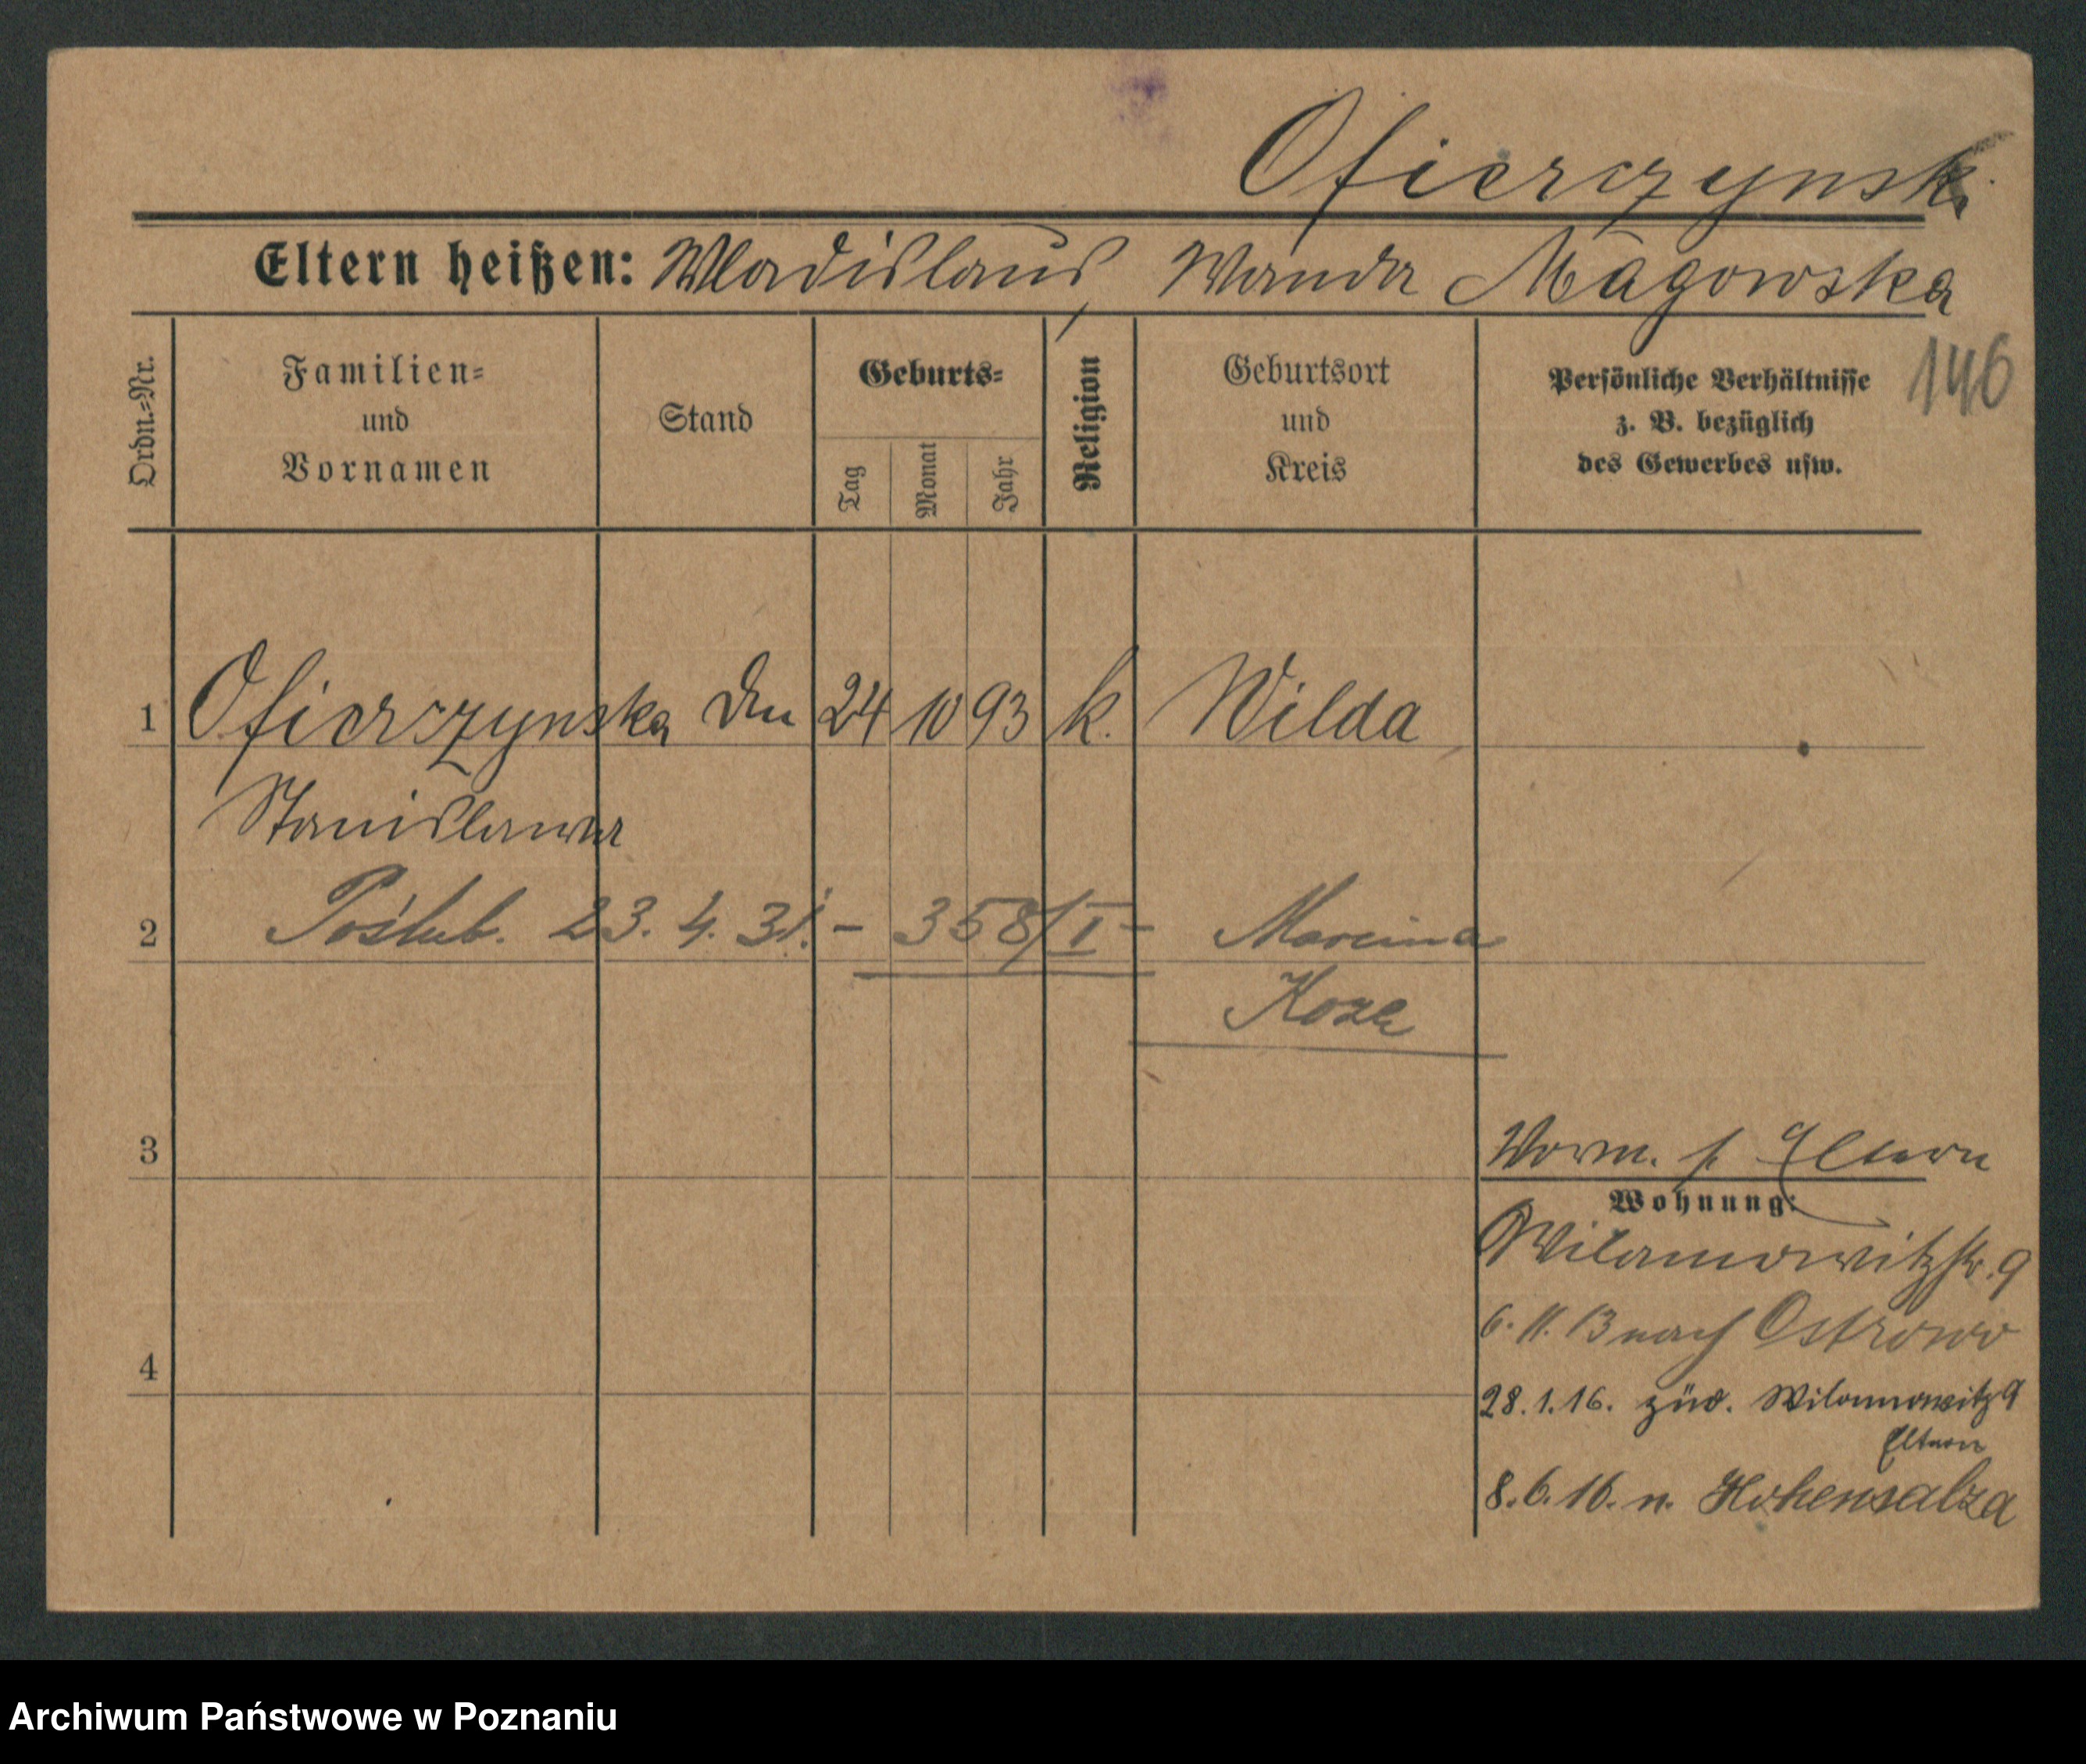 Ofierzynski
Eltern heißen: Wladislaus, Wanda Magowska
146
Ordn.-Nr.
Familien-
und
Vornamen
Stand
Geburts-
Tag
Monat
Jahr
Religion
Geburtsort
und
Kreis
Persönliche Verhältnisse
z. B. bezüglich
des Gewerbes usw.
1 Ofierzynska 24 10 93 k. Wilda
Stanislawa
2 Poślub. 23.4.31. - 358/I - Marcina
Koza
3
Worm. f. Eltern
Wohnung:
Wilamowitzstr. 9
6.11.13 nach Ostrowo
4
28.1.16. zür. Wilamowitz 9
Eltern
8.6.16. n. Hohensalza
Archiwum Państwowe w Poznaniu